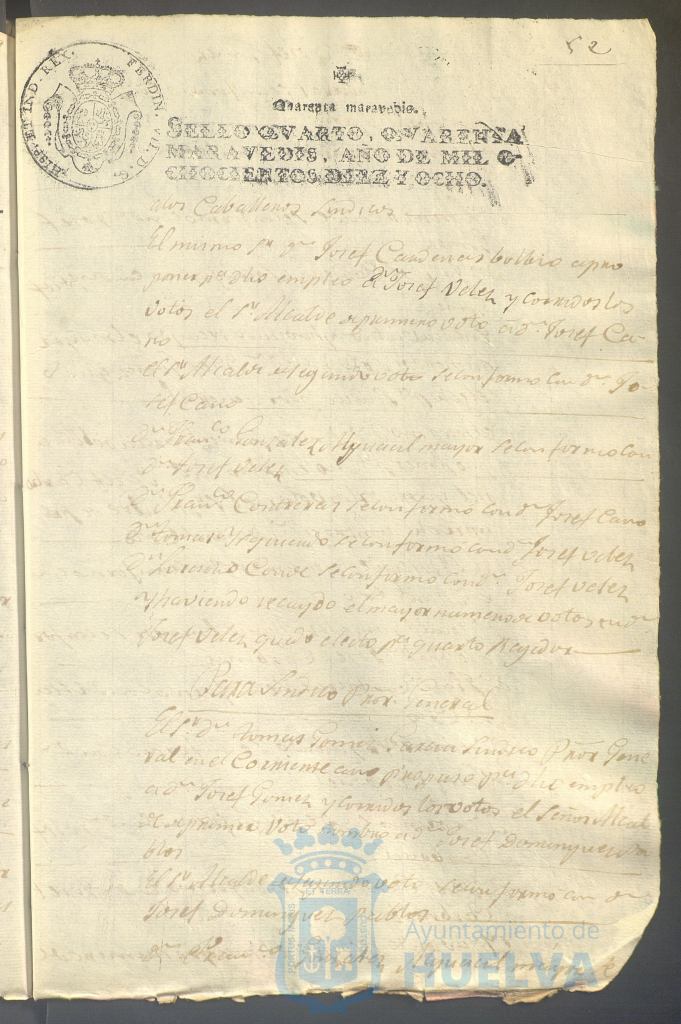 52
HISP. ET IND. REY. FERDIN. VII. D. G.
Quarenta maravedis.
SELLO QVARTO, QVARENTA
MARAVEDIS, AÑO DE MIL O-
CHOCIENTOS DIEZ Y OCHO.
a los Caballeros Sindicos
El mismo Sr. Dn. Josef Cardenas bolbio a pro
poner pa. dho empleo a Dn. Josef Velez y corridos los
votos el Sr. Alcalde de primero voto a Dn. Josef Ca-
no
el Sr. Alcalde de segundo voto se conformo con Dn. Jo-
sef Cano
Dn. Franco. Gonzalez Alguacil mayor se conformo con
Dn. Josef Velez
Dn. Franco. Contreras se conformo con Dn. Josef Cano
Dn. Tomas Yzquierdo se conformo con Dn. Josef Velez
Dn. Lorenzo se conformo con Dn. Josef Velez
y haviendo recaydo el mayor numero de votos en Dn.
Josef Velez quedo electo pa. quarto Regidor
Para Sindico Pror. General
El Sr. Dn. Tomas Gomez Garcia Sindico Pror. Gene
ral en el Corriente año propuso pa. dho empleo
a Dn. Josef Gomez y corridos los votos el Señor Alcal
de de primer Voto nombro a Dn. Josef Dominguez Pa
blos
El Sr. Alcalde de segundo voto se conformo con Dn.
Josef Dominguez Pablos
Dn. Franco. Gonzalez Alguacil mayor
Ayuntamiento de
HUELVA